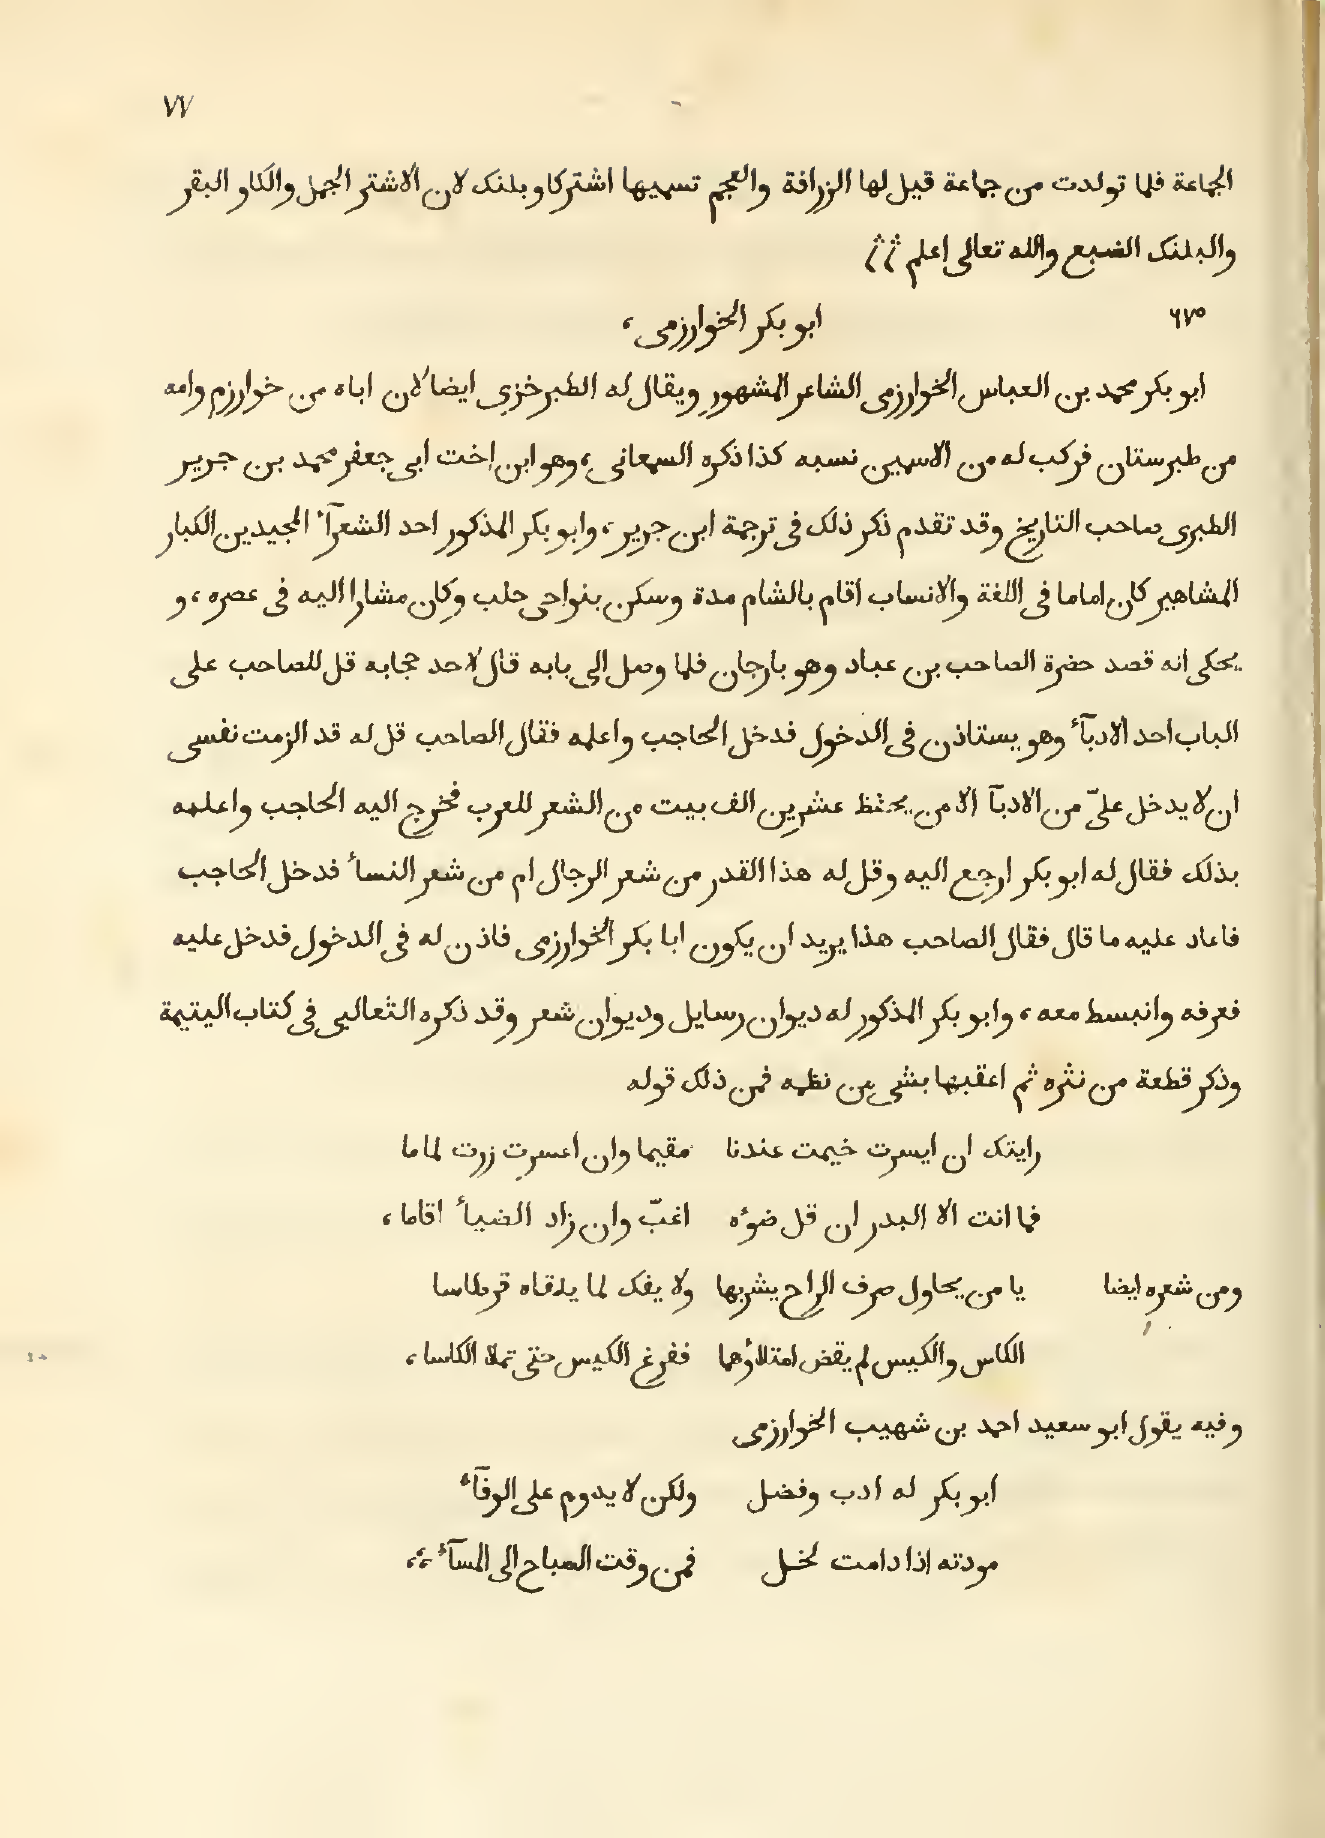 ٧٧
الجماعة فلما تولدت من جماعة قيل لها الزرافة والعجم تسميها اشتركاو بلنك لان الاشتر الجمل والكاو البقر
والبلنك الضبع والله تعالى اعلم
٦٧٥ ابو بكر الخوارزمى،
ابو بكر محمد بن العباس الخوارزمى الشاعر المشهور ويقال له الطبرخزى ايضا لان اباه من خوارزم وامه
من طبرستان فركب له من الاسمين نسبه كذا ذكره السمعانى، وهو ابن اخت ابى جعفر محمد بن جرير
الطبرى صاحب التاريخ وقد تقدم ذكر ذلك فى ترجمة ابن جرير، وابو بكر المذكور احد الشعرآء المجيدين الكبار
المشاهير كان اماما فى اللغة والانساب اقام بالشام مدة وسكن بنواحى حلب وكان مشارا اليه فى عصره، و
يحكى انه قصد حضرة الصاحب بن عباد وهو بارجان فلما وصل الى بابه قال لاحد حجابه قل للصاحب على
الباب احد الادبآء وهو يستاذن فى الدخول فدخل الحاجب واعلمه فقال الصاحب قل له قد الزمت نفسى
ان لا يدخل علىّ من الادبآ الا من يحفظ عشرين الف بيت من الشعر للعرب فخرج اليه الحاجب واعلمه
بذلك فقال له ابو بكر ارجع اليه وقل له هذا القدر من شعر الرجال ام من شعر النسآء فدخل الحاجب
فاعاد عليه ما قال فقال الصاحب هذا يريد ان يكون ابا بكر الخوارزمى فاذن له فى الدخول فدخل عليه
فعرفه وانبسط معه، وابو بكر المذكور له ديوان رسايل وديوان شعر وقد ذكره الثعالبى فى كتاب اليتيمة
وذكر قطعة من نثره ثم اعقبها بشى من نظمه فمن ذلك قوله
رايتك ان ايسرت خيمت عندنا مقيما وان اعسرت زرت لماما
فما انت الا البدر ان قل ضوءه اغبّ وان زاد الضيآء اقاما،
ومن شعره ايضا يا من يحاول صرف الراح يشربها ولا يفك لما يلقاه قرطاسا
الكاس والكيس لم يقض امتلاؤهما ففرغ الكيس حتى تملا الكاسا،
وفيه يقول ابو سعيد احمد بن شهيب الخوارزمى
ابو بكر له ادب وفضل ولكن لا يدوم على الوفآء
مودته اذا دامت لخل فمن وقت الصباح الى المسآء،،